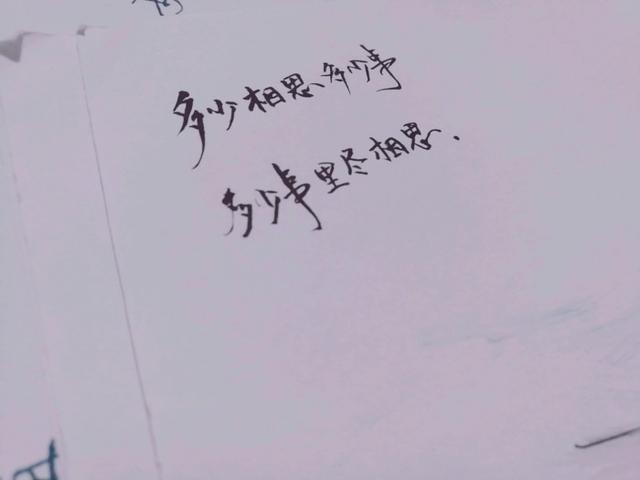 多少相思多少事
多少事里尽相思.